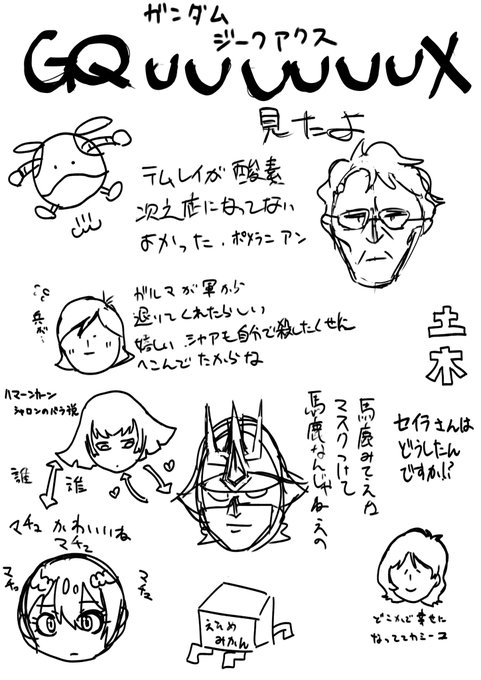 ガンダム
ジークアクス
GQuuuuuuX
見たよ
テムレイが酸素
次之症になってない
よかった.ポメラニアン
ガルマが軍から
退いてくれたらしい
嬉しい シャアも自分で殺したくせに
へこんでたからね
土木
ハマーンカーン
シャロンのバラ説
誰
誰
馬鹿みてえな
マスクつけて
馬鹿なんじゃねえの
セイラさんは
どうしたん
ですか!?
マチュ かわいいね
マチュ
マチュ
マチュ
えひめ
みかん
どこかで幸せに
なっててカミーユ